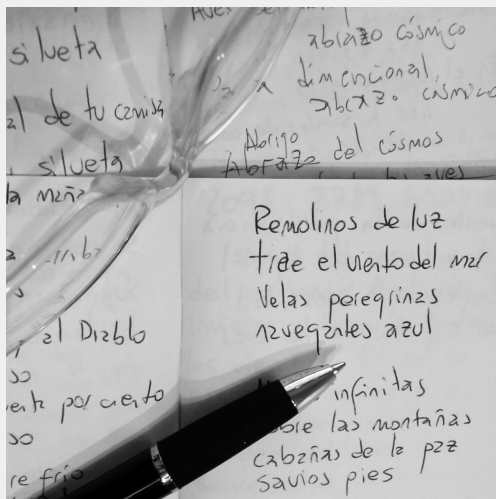 silueta
al de tu camisa
silueta
la maña
arriba
al Diablo
so
por ciento
so
re frio
abrazo cósmico
a dimencional
abrazo cósmico
Abrigo
Abrazo del cosmos
aves
Remolinos de luz
trae el viento del mar
Velas peregrinas
navegantes azul
infinitas
sobre las montañas
cabañas de la paz
savios pies